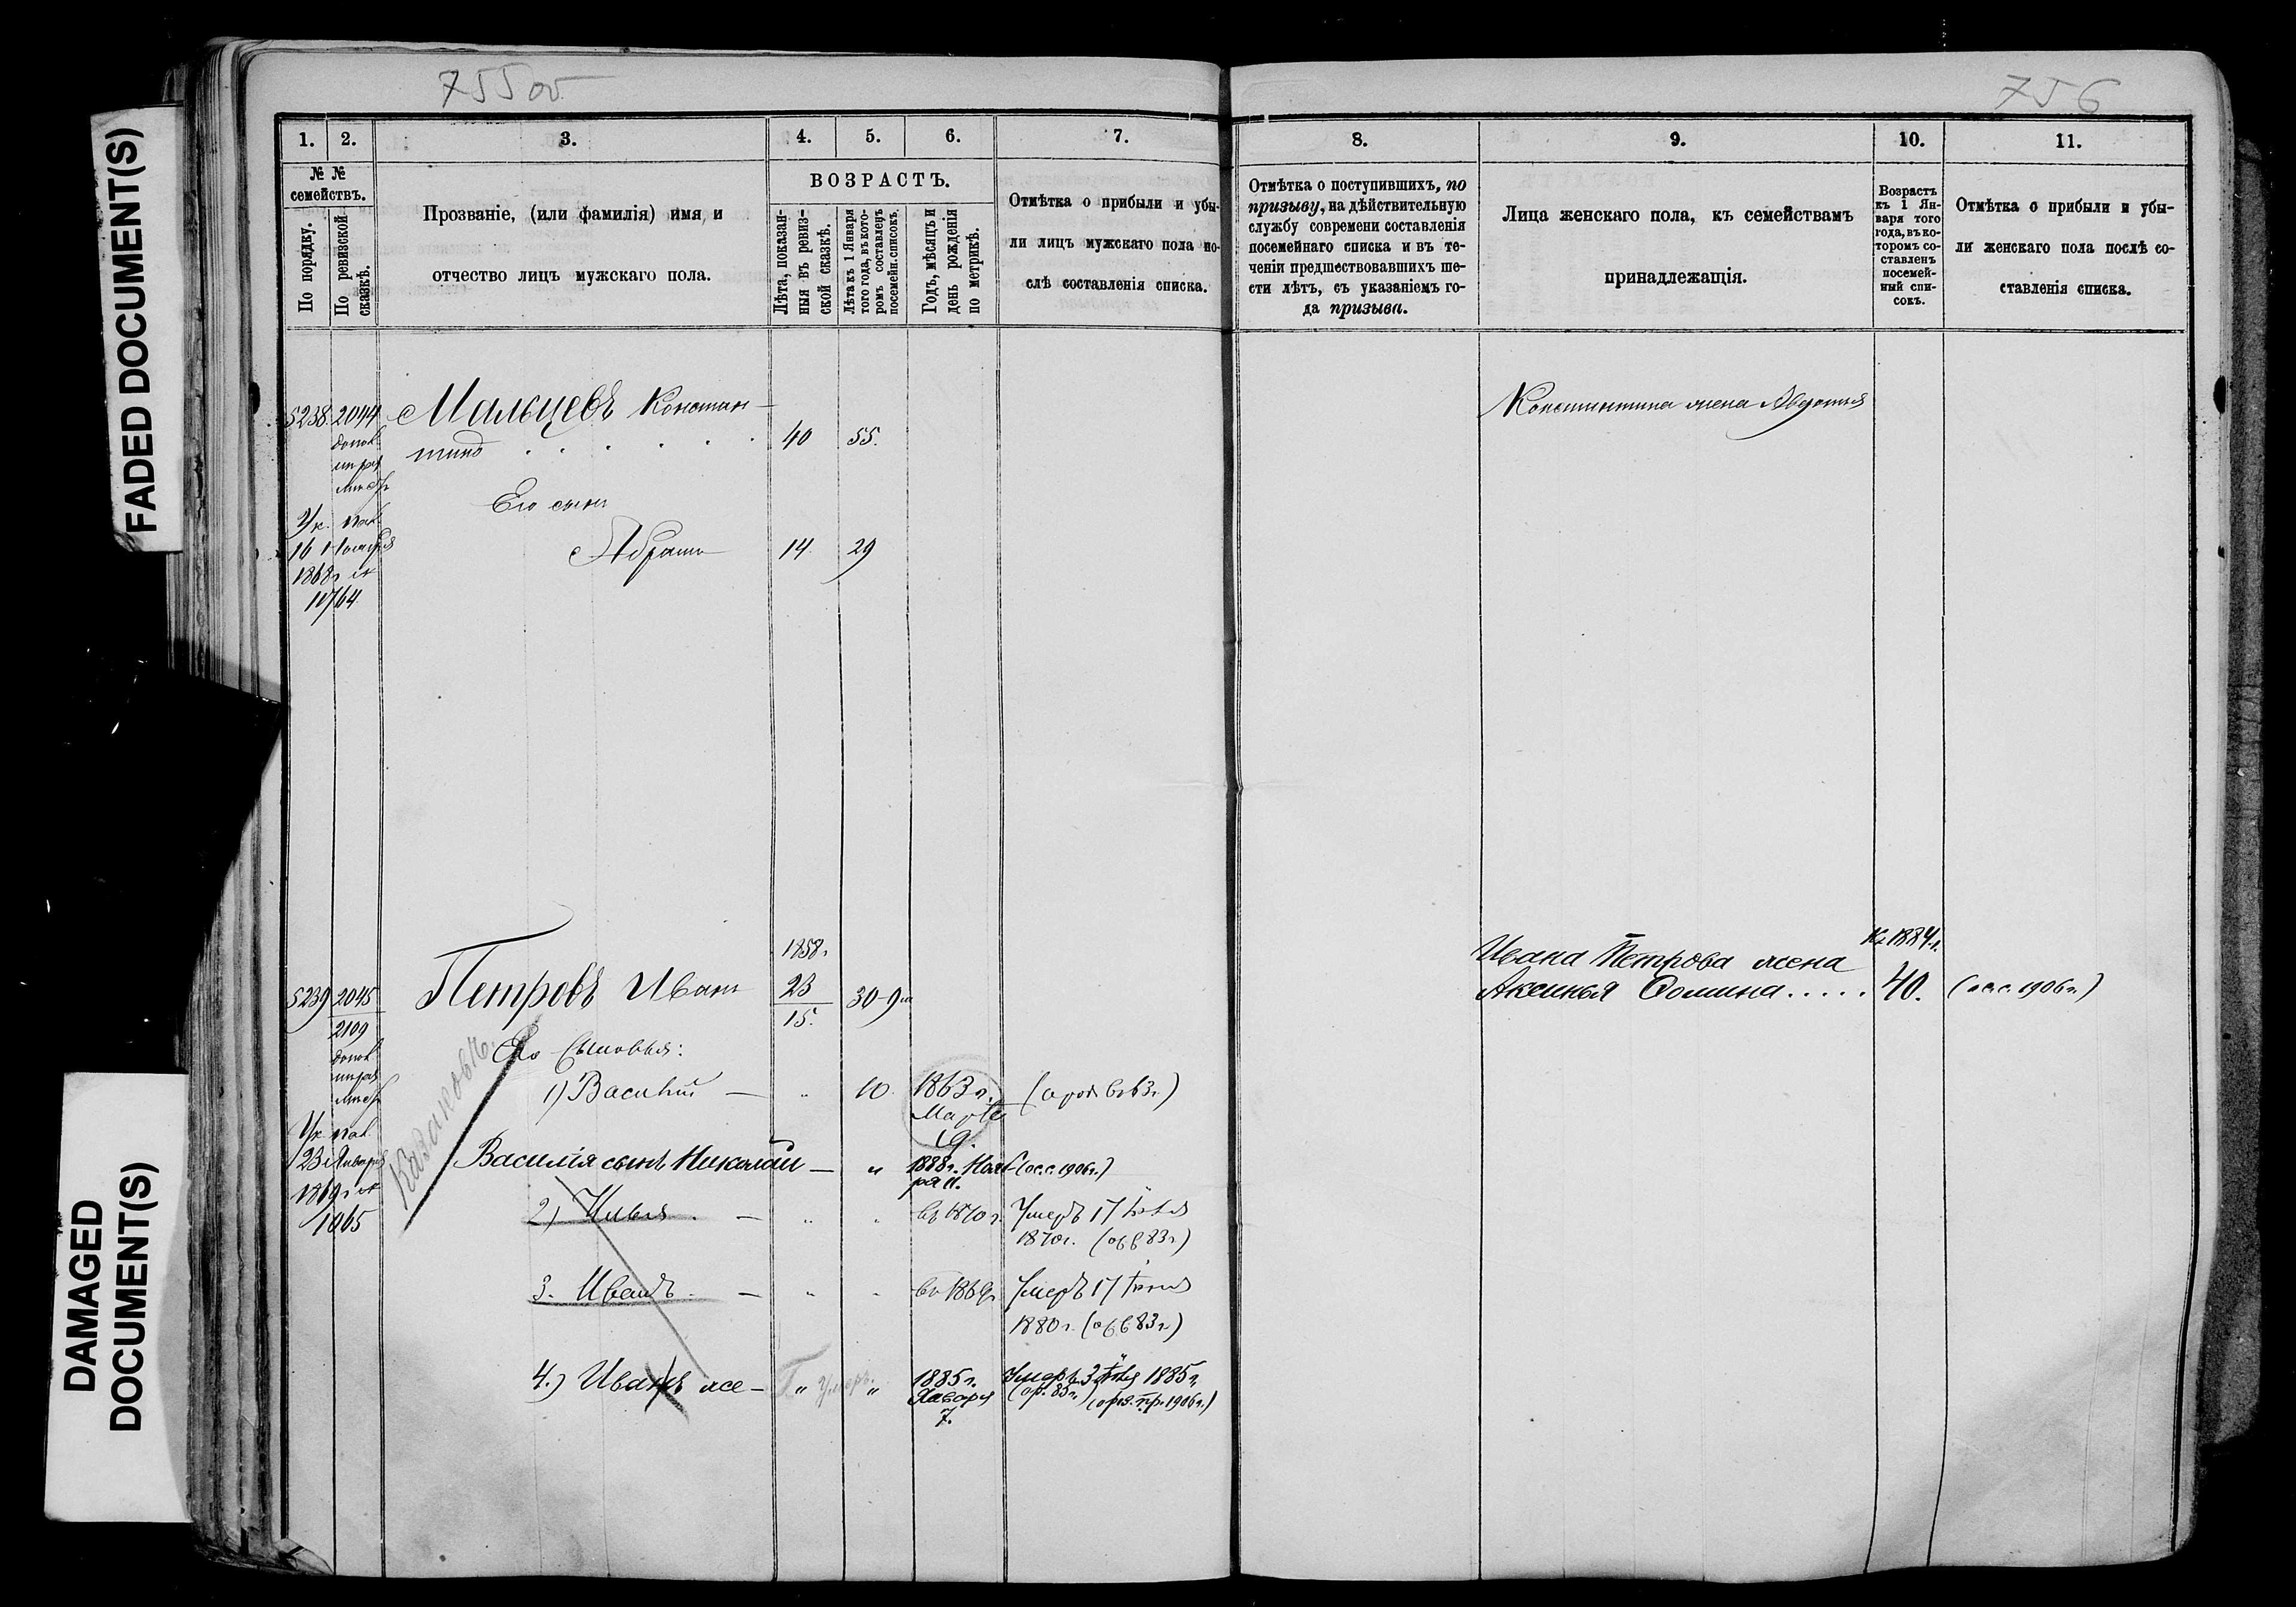 FADED DOCUMENT(S)
DAMAGED
DOCUMENT(S)
755об
756
1. 2. 3. 4. 5. 6. 7. 8. 9. 10. 11.
№ №
семействъ.
По порядку.
По ревизской
сказкѣ.
Прозваніе, (или фамилія) имя, и
отчество лицъ мужскаго пола.
ВОЗРАСТЪ.
Лѣта, показан-
ныя въ ревиз-
ской сказкѣ.
Лѣта къ 1 Января
того года, въ кото-
ромъ составленъ
посемейн. списокъ.
Годъ, мѣсяцъ и
день рожденія
по метрикѣ.
Отмѣтка о прибыли и убы-
ли лицъ мужскаго пола по-
слѣ составленія списка.
Отмѣтка о поступившихъ, по
призыву, на дѣйствительную
службу современи составленія
посемейнаго списка и въ те-
ченіи предшествовавшихъ ше-
сти лѣтъ, съ указаніемъ го-
да призыва.
Лица женскаго пола, къ семействамъ
принадлежащія.
Возрастъ
къ 1 Ян-
варя того
года, въ ко-
торомъ со-
ставленъ
посемей-
ный спи-
сокъ.
Отмѣтка о прибыли и убы-
ли женскаго пола послѣ со-
ставленія списка.
5238. 2044 Мальцевъ Констан-
тинъ . . . . . . 40 55.
Константина жена Авдотья
допол.
Ук. пал.
16 Ноября
1868 г. №
10764
Его сынъ
Абрамъ 14 29
5239 2045
2109
допол.
Петровъ Иванъ
1858 г.
23
15.
30-9
Ук. пал.
23 Января
1869 г. №
1065
Казаковъ.
Его Сыновья:
1) Василій — „ 10. 1863 г.
Марта
19.
Василія сынъ Николай — „ 1888 г. Нояб-
ря
(ос.с. 1906 г.)
2) Илья . — „ „ въ 1870 г. Умеръ 17
1870 г. (83 г.)
3. Иванъ . — „ „ Умеръ 17
1880 г. (83 г.)
4.) Иванъ же — „ умеръ. „ 1885 г.
Января
7.
Умеръ 3 1885 г.
Ивана Петрова жена
Аксинья Фомина . . . . .
Къ 1884 г.
40.
(ос.с. 1906 г.)